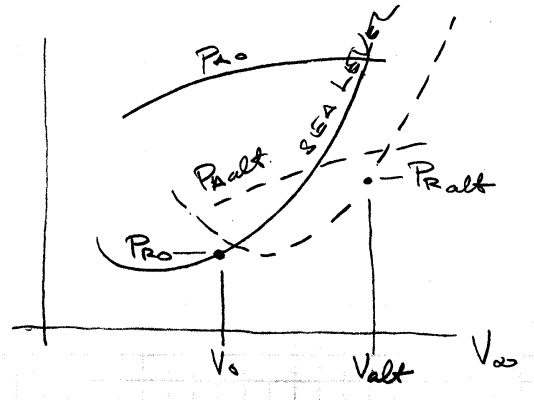 PAO
SEA LEVEL
PAalt
PRalt
PRO
V0
Valt
V∞